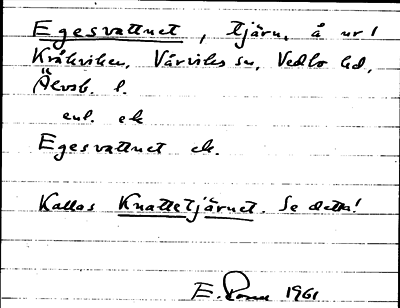 Egesvattnet, tjärn, å nr 1
Kråkviken, Vårviks sn, Vedbo hd,
Älvsb. l.
enl. ek
Egesvattnet ek.
Kallas Knattetjärnet. Se detta!
E. 1961